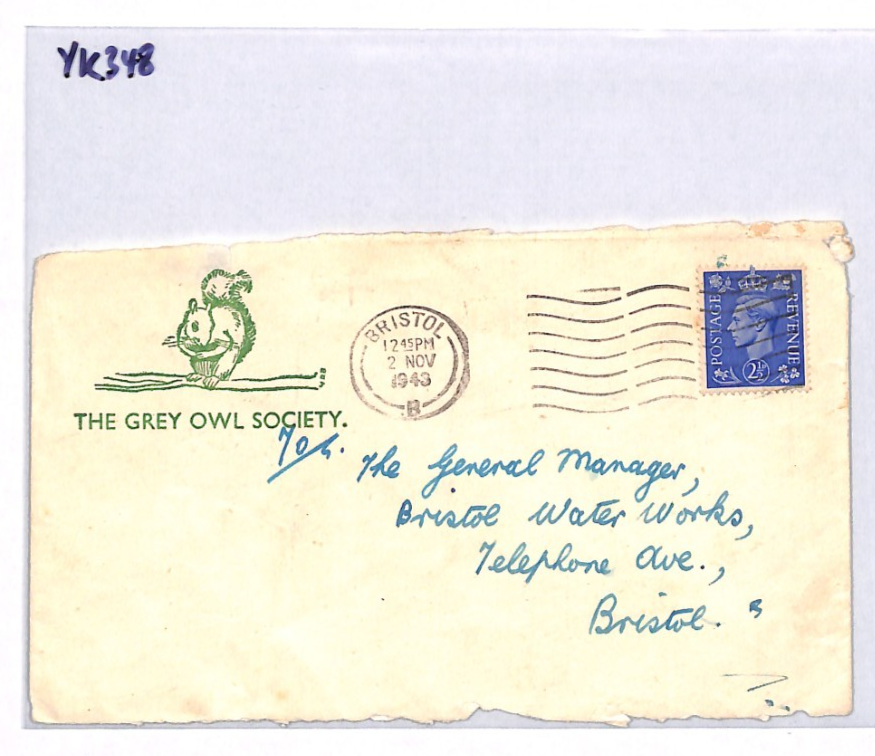 YK348
BRISTOL
12 45PM
2 NOV
1943
B
POSTAGE
REVENUE
2½D
THE GREY OWL SOCIETY.
The General Manager,
Bristol Water Works,
Telephone Ave.,
Bristol.